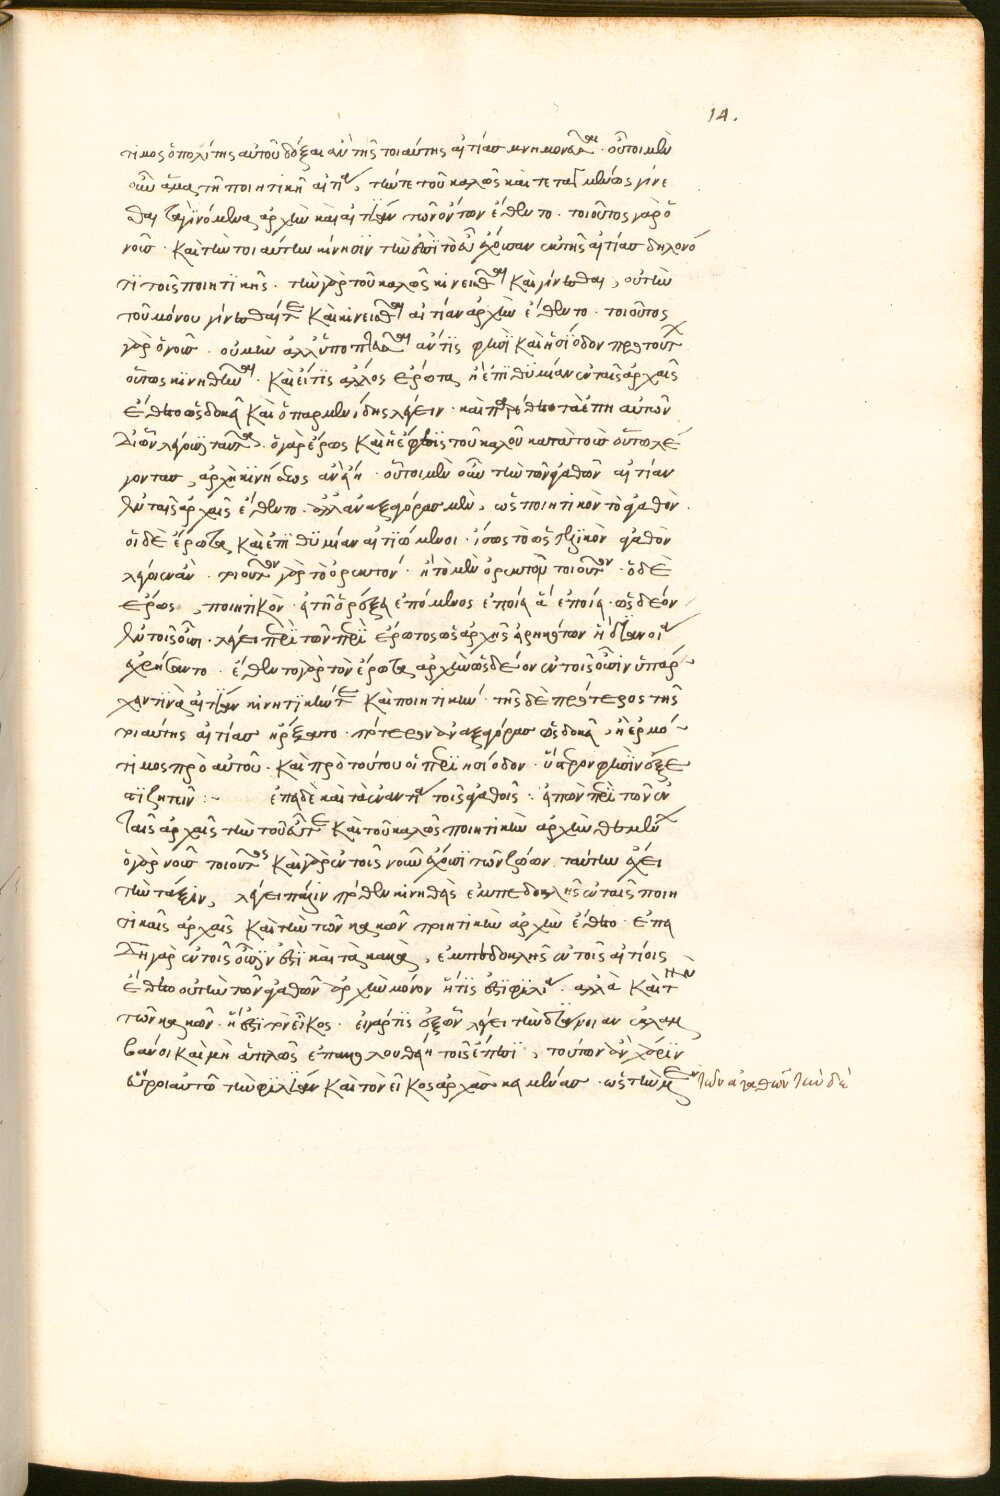 14.
τιμος ὁ πολίτης αὐτοῦ δόξαι ἂν τῆς τοιαύτης αἰτίας μνημονεῦσαι · οὗτοι μὲν
οὖν ἅμα τῇ ποιητικῇ αἰτίᾳ, τῶτε τοῦ καλῶς καὶ τεταγμένως γίνε
σθαι τὰ γινόμενα ἀρχὴν καὶ αἰτίαν τῶν ὄντων ἔθεντο · τοιοῦτος γὰρ ὁ
νοῦς · καὶ τὴν τοιαύτην κίνησιν τὴν ἐπὶ τὸ εὖ ἔχουσαν ἐκ τῆς αἰτίας δηλονό
τι τοῖς ποιητικῆς · τὴν γὰρ τοῦ καλῶς κινεῖσθαι καὶ γίνεσθαι, οὐ τὴν
τοῦ μόνου γίνεσθαί τε καὶ κινεῖσθαι αἰτίαν ἀρχὴν ἔθεντο · τοιοῦτος
γὰρ ὁ νοῦς · οὐ μὴν ἀλλ' ὑποπτεῦσαι ἄν τις φησὶ καὶ ἡσίοδον πρῶτον
οὕτως κινηθῆναι · καὶ εἴ τις ἄλλος ἔρωτα ἢ ἐπιθυμίαν ἐν ταῖς ἀρχαῖς
ἔθετο ὡς δοκεῖ καὶ ὁ παρμενίδης λέγειν · καὶ παρέθετο τὰ ἔπη αὐτῶν
δι' ὧν λέγουσι ταῦτα · ὁ γὰρ ἔρως καὶ ἡ ἔφεσις τοῦ καλοῦ κατὰ τοὺς οὕτω λέ
γοντας, ἀρχὴ κινήσεως ἂν εἴη · οὗτοι μὲν οὖν τὴν τῶν ἀγαθῶν αἰτίαν
ἐν ταῖς ἀρχαῖς ἔθεντο · ἀλλ' ἀναξαγόρας μὲν, ὡς ποιητικὸν τὸ ἀγαθὸν ·
οἱ δὲ ἔρωτα καὶ ἐπιθυμίαν αἰτιώμενοι · ἴσως τὸ ὡς τελικὸν ἀγαθὸν
λέγοιεν ἄν · τοιοῦτον γὰρ τὸ ὀρεκτόν · ἢ τὸ μὲν ὀρεκτὸν τοιοῦτον · ὁ δὲ
ἔρως, ποιητικὸν · εἰ τῇ ὀρέξει ἑπόμενος ἐποίει ἃ ἐποίει · ὡς δέον
ἐν τοῖς οὖσι · λέγει περὶ τῶν περὶ ἔρωτος ὡς ἀρχῆς εἰρηκότων ᾗ διανοίᾳ
ἐχρήσαντο · ἔθεντο γὰρ τὸν ἔρωτα ἀρχὴν ὡς δέον ἐν τοῖς οὖσιν ὑπάρ
χειν τινὰ αἰτίαν κινητικήν τε καὶ ποιητικήν · τῆς δὲ πρότερος τῆς
τοιαύτης αἰτίας ἤρξατο · πότερον ἀναξαγόρας ὡς δοκεῖ, ἢ ἑρμό
τιμος πρὸ αὐτοῦ · καὶ πρὸ τούτου οἱ περὶ ἡσίοδον · ὕστερον φησὶν ἔξε
στι ζητεῖν :~ ἐπεὶ δὲ καὶ τὰ ἐναντία τοῖς ἀγαθοῖς · εἰπὼν περὶ τῶν ἐν
ταῖς ἀρχαῖς τὴν τοῦ εὖ τε καὶ τοῦ καλῶς ποιητικὴν ἀρχὴν θεμένων
ὁ γὰρ νοῦς τοιοῦτος καὶ γὰρ ἐν τοῖς νοῦν ἔχουσι τῶν ζῴων ταύτην ἔχει
τὴν τάξιν, λέγει πάλιν πόθεν κινηθεὶς ἐμπεδοκλῆς ἐν ταῖς ποιη
τικαῖς ἀρχαῖς καὶ τὴν τῶν κακῶν ποιητικὴν ἀρχὴν ἔθετο · ἐπει
δὴ γὰρ ἐν τοῖς οὖσίν ἐστι καὶ τὰ κακὰ, ἐμπεδοκλῆς ἐν τοῖς αἰτίοις
ἔθετο οὐ τὴν τῶν ἀγαθῶν ἀρχὴν μόνον ἥτις ἐστὶ φιλία · ἀλλὰ καὶ τὴν
τῶν κακῶν · ἥ ἐστι τὸ νεῖκος · εἰ γάρ τις ἐξ ὧν λέγει τὴν διάνοιαν ἐκλαμ
βάνοι καὶ μὴ ἁπλῶς ἐπακολουθοίη τοῖς ἔπεσι, τοῦτον ἂν χάριν
εὕροι αὐτῷ τὴν φιλίαν καὶ τὸν εῖκος ἀρχὰς καμένας · ὡς τὴν μὲν τῶν ἀγαθῶν τὴν δὲ